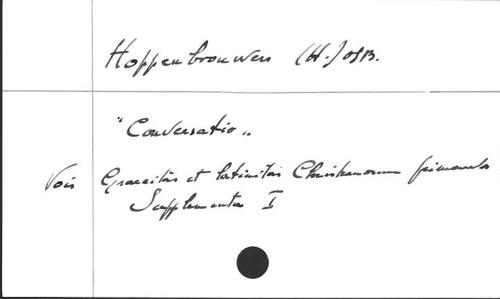 Hoppenbrouwers (H.) OSB.
"Conversatio"
Vois Graecitas et latinitas Christianorum primaeva
Supplementa I